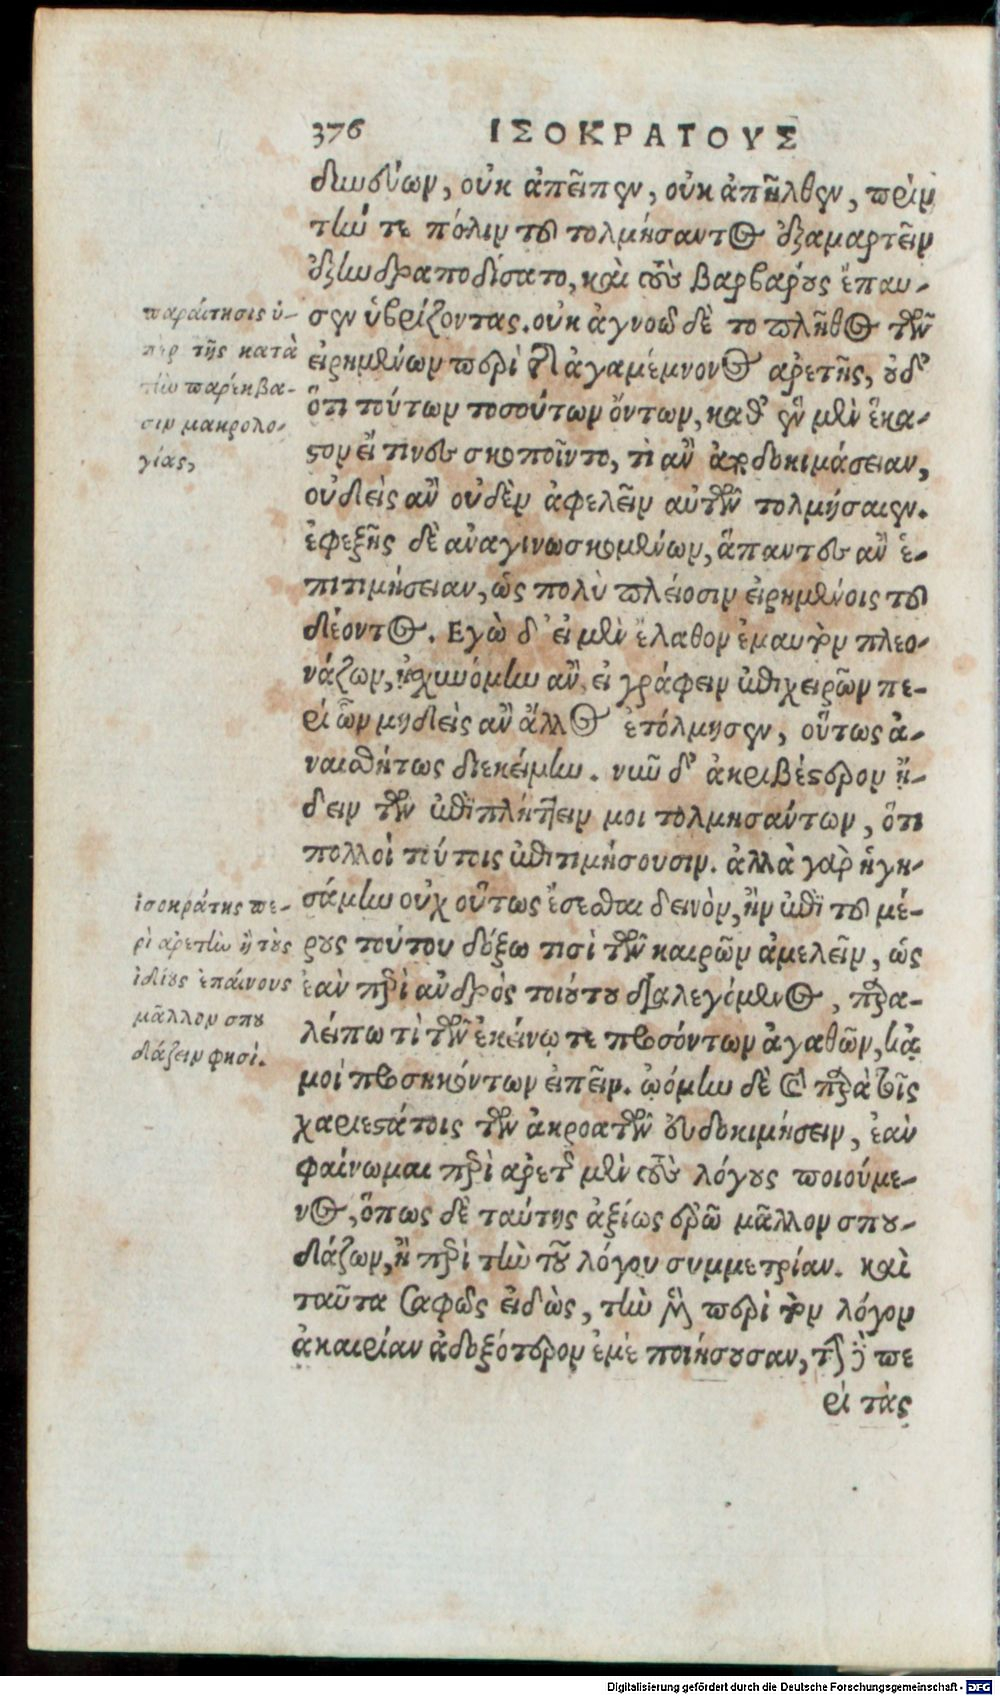 376 ΙΣΟΚΡΑΤΟΥΣ
δυνεύων, οὐκ ἀπεῖπεν, οὐκ ἀπῆλθεν, πρὶν
τήν τε πόλιν τοῦ τολμήσαντος ἐξαμαρτεῖν
ἐξηνδραποδίσατο, καὶ τοὺς βαρβάρους ἔπαυ-
σεν ὑβρίζοντας. οὐκ ἀγνοῶ δὲ τὸ πλῆθος τῶν
εἰρημένων περὶ τῆς ἀγαμέμνονος ἀρετῆς, οὐδ'
ὅτι τούτων τοσούτων ὄντων, καθ' ἓν μὲν ἕκα-
στον εἴ τινες σκοποῖντο, τί ἂν ἀποδοκιμάσειαν,
οὐδεὶς ἂν οὐδὲν ἀφελεῖν αὐτῶν τολμήσαιεν.
ἐφεξῆς δὲ ἀναγινωσκομένων, ἅπαντες ἂν ἐ-
πιτιμήσειαν, ὡς πολὺ πλείοσιν εἰρημένοις τοῦ
δέοντος. Εγὼ δ' εἰ μὲν ἔλαθον ἐμαυτὸν πλεο-
νάζων, ᾐσχυνόμην ἂν, εἰ γράφειν ἐπιχειρῶν πε-
ρὶ ὧν μηδεὶς ἂν ἄλλος ἐτόλμησεν, οὕτως ἀ-
ναισθήτως διεκείμην. νῦν δ' ἀκριβέστερον ᾔ-
δειν τῶν ἐπιπλήττειν μοι τολμησάντων, ὅτι
πολλοὶ τούτοις ἐπιτιμήσουσιν. ἀλλὰ γὰρ ἡγη-
σάμην οὐχ οὕτως ἔσεσθαι δεινὸν, ἢν ἐπὶ τοῦ μέ-
ρους τούτου δόξω τισὶ τῶν καιρῶν ἀμελεῖν, ὡς
ἐὰν περὶ ἀνδρὸς τοιούτου διαλεγόμενος, παρα-
λείπω τὶ τῶν ἐκείνῳ τε προσόντων ἀγαθῶν, κἀ
μοὶ προσηκόντων εἰπεῖν. ᾠόμην δὲ καὶ παρὰ τοῖς
χαριεστάτοις τῶν ἀκροατῶν εὐδοκιμήσειν, ἐὰν
φαίνωμαι περὶ ἀρετῆς μὲν τοὺς λόγους ποιούμε-
νος, ὅπως δὲ ταύτης ἀξίως ἐρῶ μᾶλλον σπου-
δάζων, ἢ περὶ τὴν τοῦ λόγου συμμετρίαν. καὶ
ταῦτα σαφῶς εἰδὼς, τὴν μὲν περὶ τὸν λόγον
ἀκαιρίαν ἀδοξότερον ἐμὲ ποιήσουσαν, τὴν δὲ πε
ρὶ τὰς
παραίτησις ὑ-
πὲρ τῆς κατὰ
τὴν παρέκβα-
σιν μακρολο-
γίας,
ἰσοκράτης πε-
ρὶ ἀρετὴν ἢ τοὺς
ἰδίους ἐπαίνους
μᾶλλον σπου
δάζειν φησὶ.
Digitalisierung gefördert durch die Deutsche Forschungsgemeinschaft - DFG